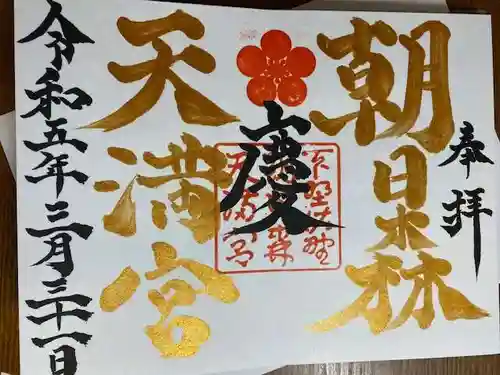 奉拝
朝日森
慶
下野佐野
朝日森
天満宮
天満宮
令和五年三月三十一日